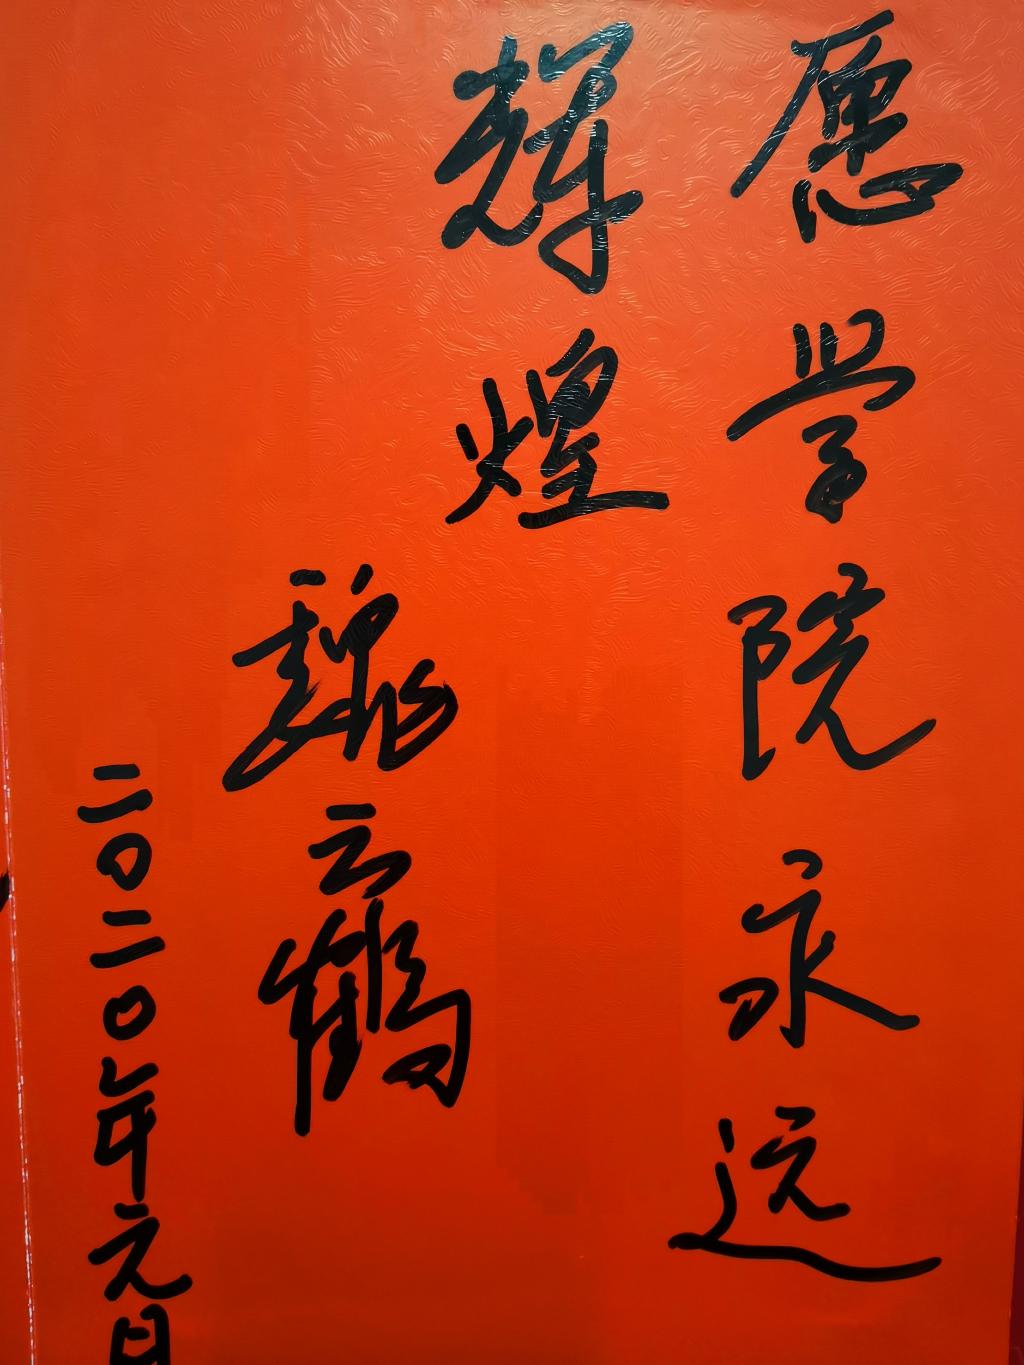 愿学院永远
辉煌
魏云鹤
二〇二〇年元日